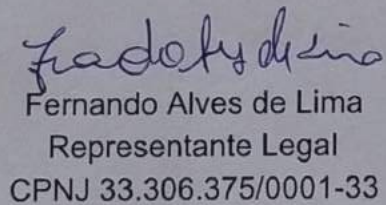 Fernando Alves de Lima
Representante Legal
CPNJ 33.306.375/0001-33